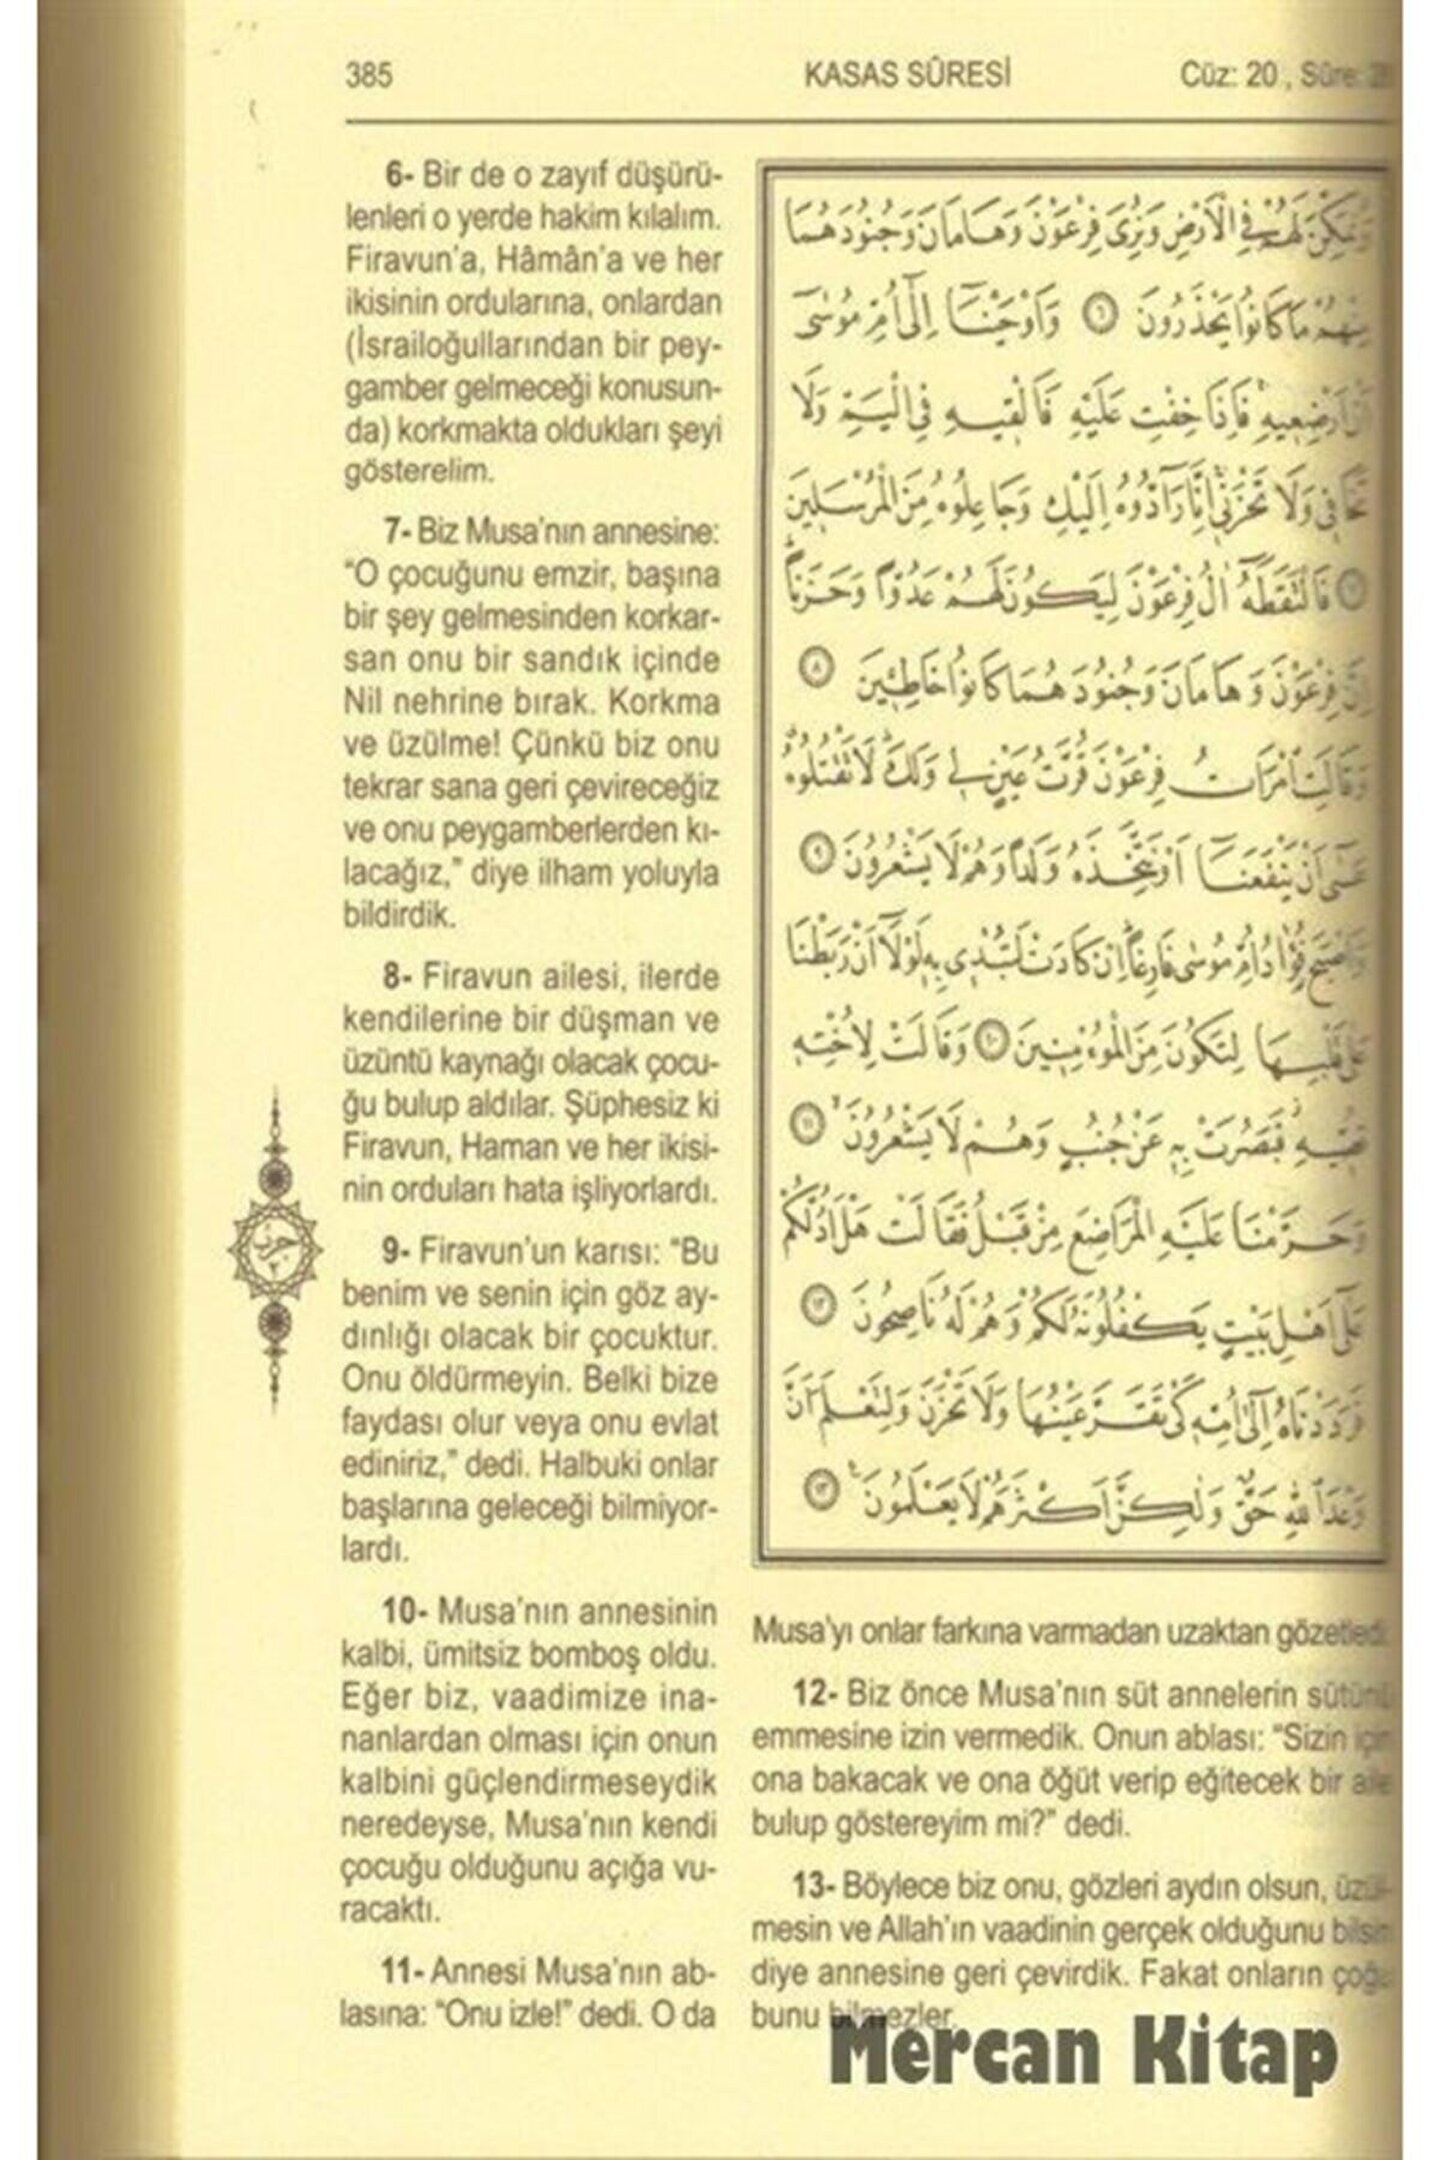 385
KASAS SÛRESİ
Cüz: 20 , Sûre:
6- Bir de o zayıf düşürü-
lenleri o yerde hakim kılalım.
Firavun'a, Hâmân'a ve her
ikisinin ordularına, onlardan
(İsrailoğullarından bir pey-
gamber gelmeceği konusun-
da) korkmakta oldukları şeyi
gösterelim.
7- Biz Musa'nın annesine:
"O çocuğunu emzir, başına
bir şey gelmesinden korkar-
san onu bir sandık içinde
Nil nehrine bırak. Korkma
ve üzülme! Çünkü biz onu
tekrar sana geri çevireceğiz
ve onu peygamberlerden kı-
lacağız," diye ilham yoluyla
bildirdik.
8- Firavun ailesi, ilerde
kendilerine bir düşman ve
üzüntü kaynağı olacak çocu-
ğu bulup aldılar. Şüphesiz ki
Firavun, Haman ve her ikisi-
nin orduları hata işliyorlardı.
9- Firavun'un karısı: "Bu
benim ve senin için göz ay-
dınlığı olacak bir çocuktur.
Onu öldürmeyin. Belki bize
faydası olur veya onu evlat
ediniriz," dedi. Halbuki onlar
başlarına geleceği bilmiyor-
lardı.
10- Musa'nın annesinin
kalbi, ümitsiz bomboş oldu.
Eğer biz, vaadimize ina-
nanlardan olması için onun
kalbini güçlendirmeseydik
neredeyse, Musa'nın kendi
çocuğu olduğunu açığa vu-
racaktı.
11- Annesi Musa'nın ab-
lasına: "Onu izle!" dedi. O da
وَنُمَكِّنَ لَهُمْ فِي الْاَرْضِ وَنُرِيَ فِرْعَوْنَ وَهَامَانَ وَجُنُودَهُمَا
مِنْهُمْ مَا كَانُوا يَحْذَرُونَ ﴿٦﴾ وَاَوْحَيْنَٓا اِلٰٓى اُمِّ مُوسٰٓى
اَنْ اَرْضِعِيهِ فَاِذَا خِفْتِ عَلَيْهِ فَاَلْقِيهِ فِي الْيَمِّ وَلَا
تَخَافِي وَلَا تَحْزَنِي اِنَّا رَٓادُّوهُ اِلَيْكِ وَجَاعِلُوهُ مِنَ الْمُرْسَلِينَ
﴿٧﴾ فَالْتَقَطَهُٓ اٰلُ فِرْعَوْنَ لِيَكُونَ لَهُمْ عَدُوًّا وَحَزَنًا
اِنَّ فِرْعَوْنَ وَهَامَانَ وَجُنُودَهُمَا كَانُوا خَاطِـِٔينَ ﴿٨﴾
وَقَالَتِ امْرَاَتُ فِرْعَوْنَ قُرَّتُ عَيْنٍ لِي وَلَكَ لَا تَقْتُلُوهُ
عَسٰٓى اَنْ يَنْفَعَنَٓا اَوْ نَتَّخِذَهُ وَلَدًا وَهُمْ لَا يَشْعُرُونَ ﴿٩﴾
وَاَصْبَحَ فُؤٰادُ اُمِّ مُوسٰى فَارِغًا اِنْ كَادَتْ لَتُبْدِي بِهِ لَوْلَٓا اَنْ رَبَطْنَا
عَلٰى قَلْبِهَا لِتَكُونَ مِنَ الْمُؤْمِنِينَ ﴿١٠﴾ وَقَالَتْ لِاُخْتِهِ
قُصِّيهِ فَبَصُرَتْ بِهِ عَنْ جُنُبٍ وَهُمْ لَا يَشْعُرُونَ ﴿١١﴾
وَحَرَّمْنَا عَلَيْهِ الْمَرَاضِعَ مِنْ قَبْلُ فَقَالَتْ هَلْ اَدُلُّكُمْ
عَلٰٓى اَهْلِ بَيْتٍ يَكْفُلُونَهُ لَكُمْ وَهُمْ لَهُ نَاصِحُونَ ﴿١٢﴾
فَرَدَدْنَاهُ اِلٰٓى اُمِّهِ كَيْ تَقَرَّ عَيْنُهَا وَلَا تَحْزَنَ وَلِتَعْلَمَ اَنَّ
وَعْدَ اللّٰهِ حَقٌّ وَلٰكِنَّ اَكْثَرَهُمْ لَا يَعْلَمُونَ ﴿١٣﴾
Musa'yı onlar farkına varmadan uzaktan gözetledi.
12- Biz önce Musa'nın süt annelerin sütünü
emmesine izin vermedik. Onun ablası: "Sizin için
ona bakacak ve ona öğüt verip eğitecek bir aile
bulup göstereyim mi?" dedi.
13- Böylece biz onu, gözleri aydın olsun, üzül-
mesin ve Allah'ın vaadinin gerçek olduğunu bilsin
diye annesine geri çevirdik. Fakat onların çoğu
bunu bilmezler.
Mercan Kitap